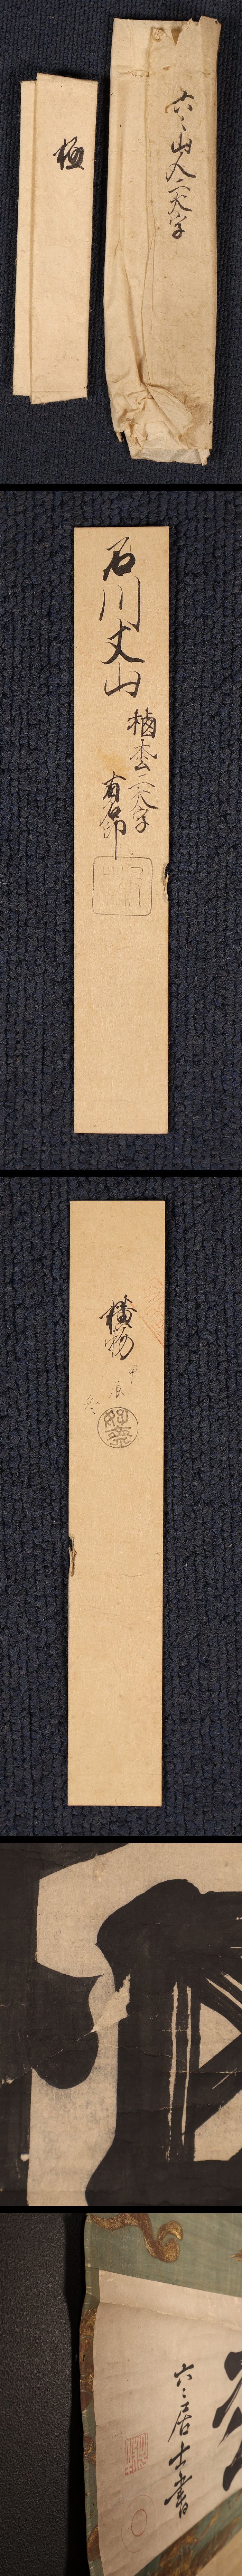 極
六々山人二大字
石川丈山
二大字
有名印
横物
甲
辰
冬
六々居士書